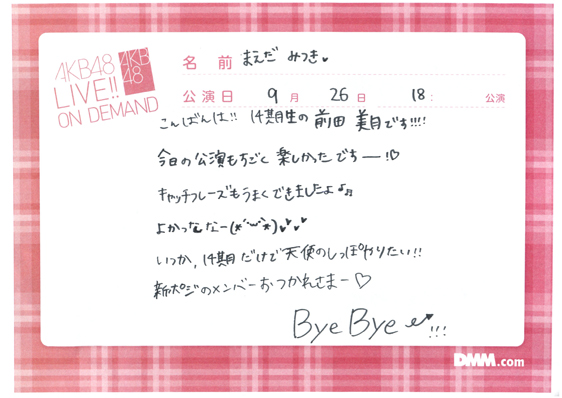 AKB48
LIVE!!
ON DEMAND
AKB
48
名 前 まえだ みつき♥
公演日 9 月 26 日 18: 公演
こんばんは!! 14期生の 前田 美月でち!!!!
今日の公演もすごく 楽しかったでちー!♡
キャッチフレーズもうまくできましたよ♪♫
よかったなー(*´︶`*)♥♥♥
いつか、14期だけで天使のしっぽやりたい!!
新ポジのメンバーおつかれさまー♡
Bye Bye !!!
DMM.com